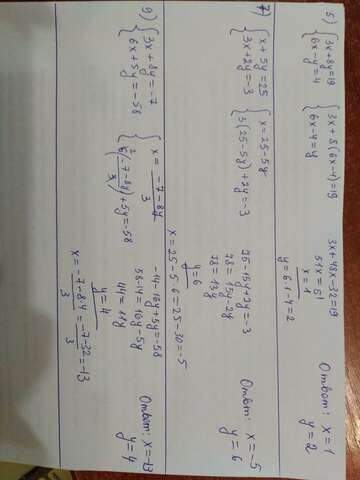 5) { 3x+8y=19
6x-y=4
{ 3x+8(6x-4)=19
6x-4=y
3x+48x-32=19
51x=51
x=1
y=6·1-4=2
Ответ: x=1
y=2
7) { x+5y=25
3x+2y=-3
{ x=25-5y
3(25-5y)+2y=-3
75-15y+2y=-3
78=15y-2y
78=13y
y=6
x=25-5·6=25-30=-5
Ответ: x=-5
y=6
9) { 3x+8y=-7
6x+5y=-58
{ x=-7-8y/3
6(-7-8y/3)+5y=-58
-14-16y+5y=-58
58-14=16y-5y
44=11y
y=4
x=-7-8·4/3=-7-32/3=-13
Ответ: x=-13
y=4